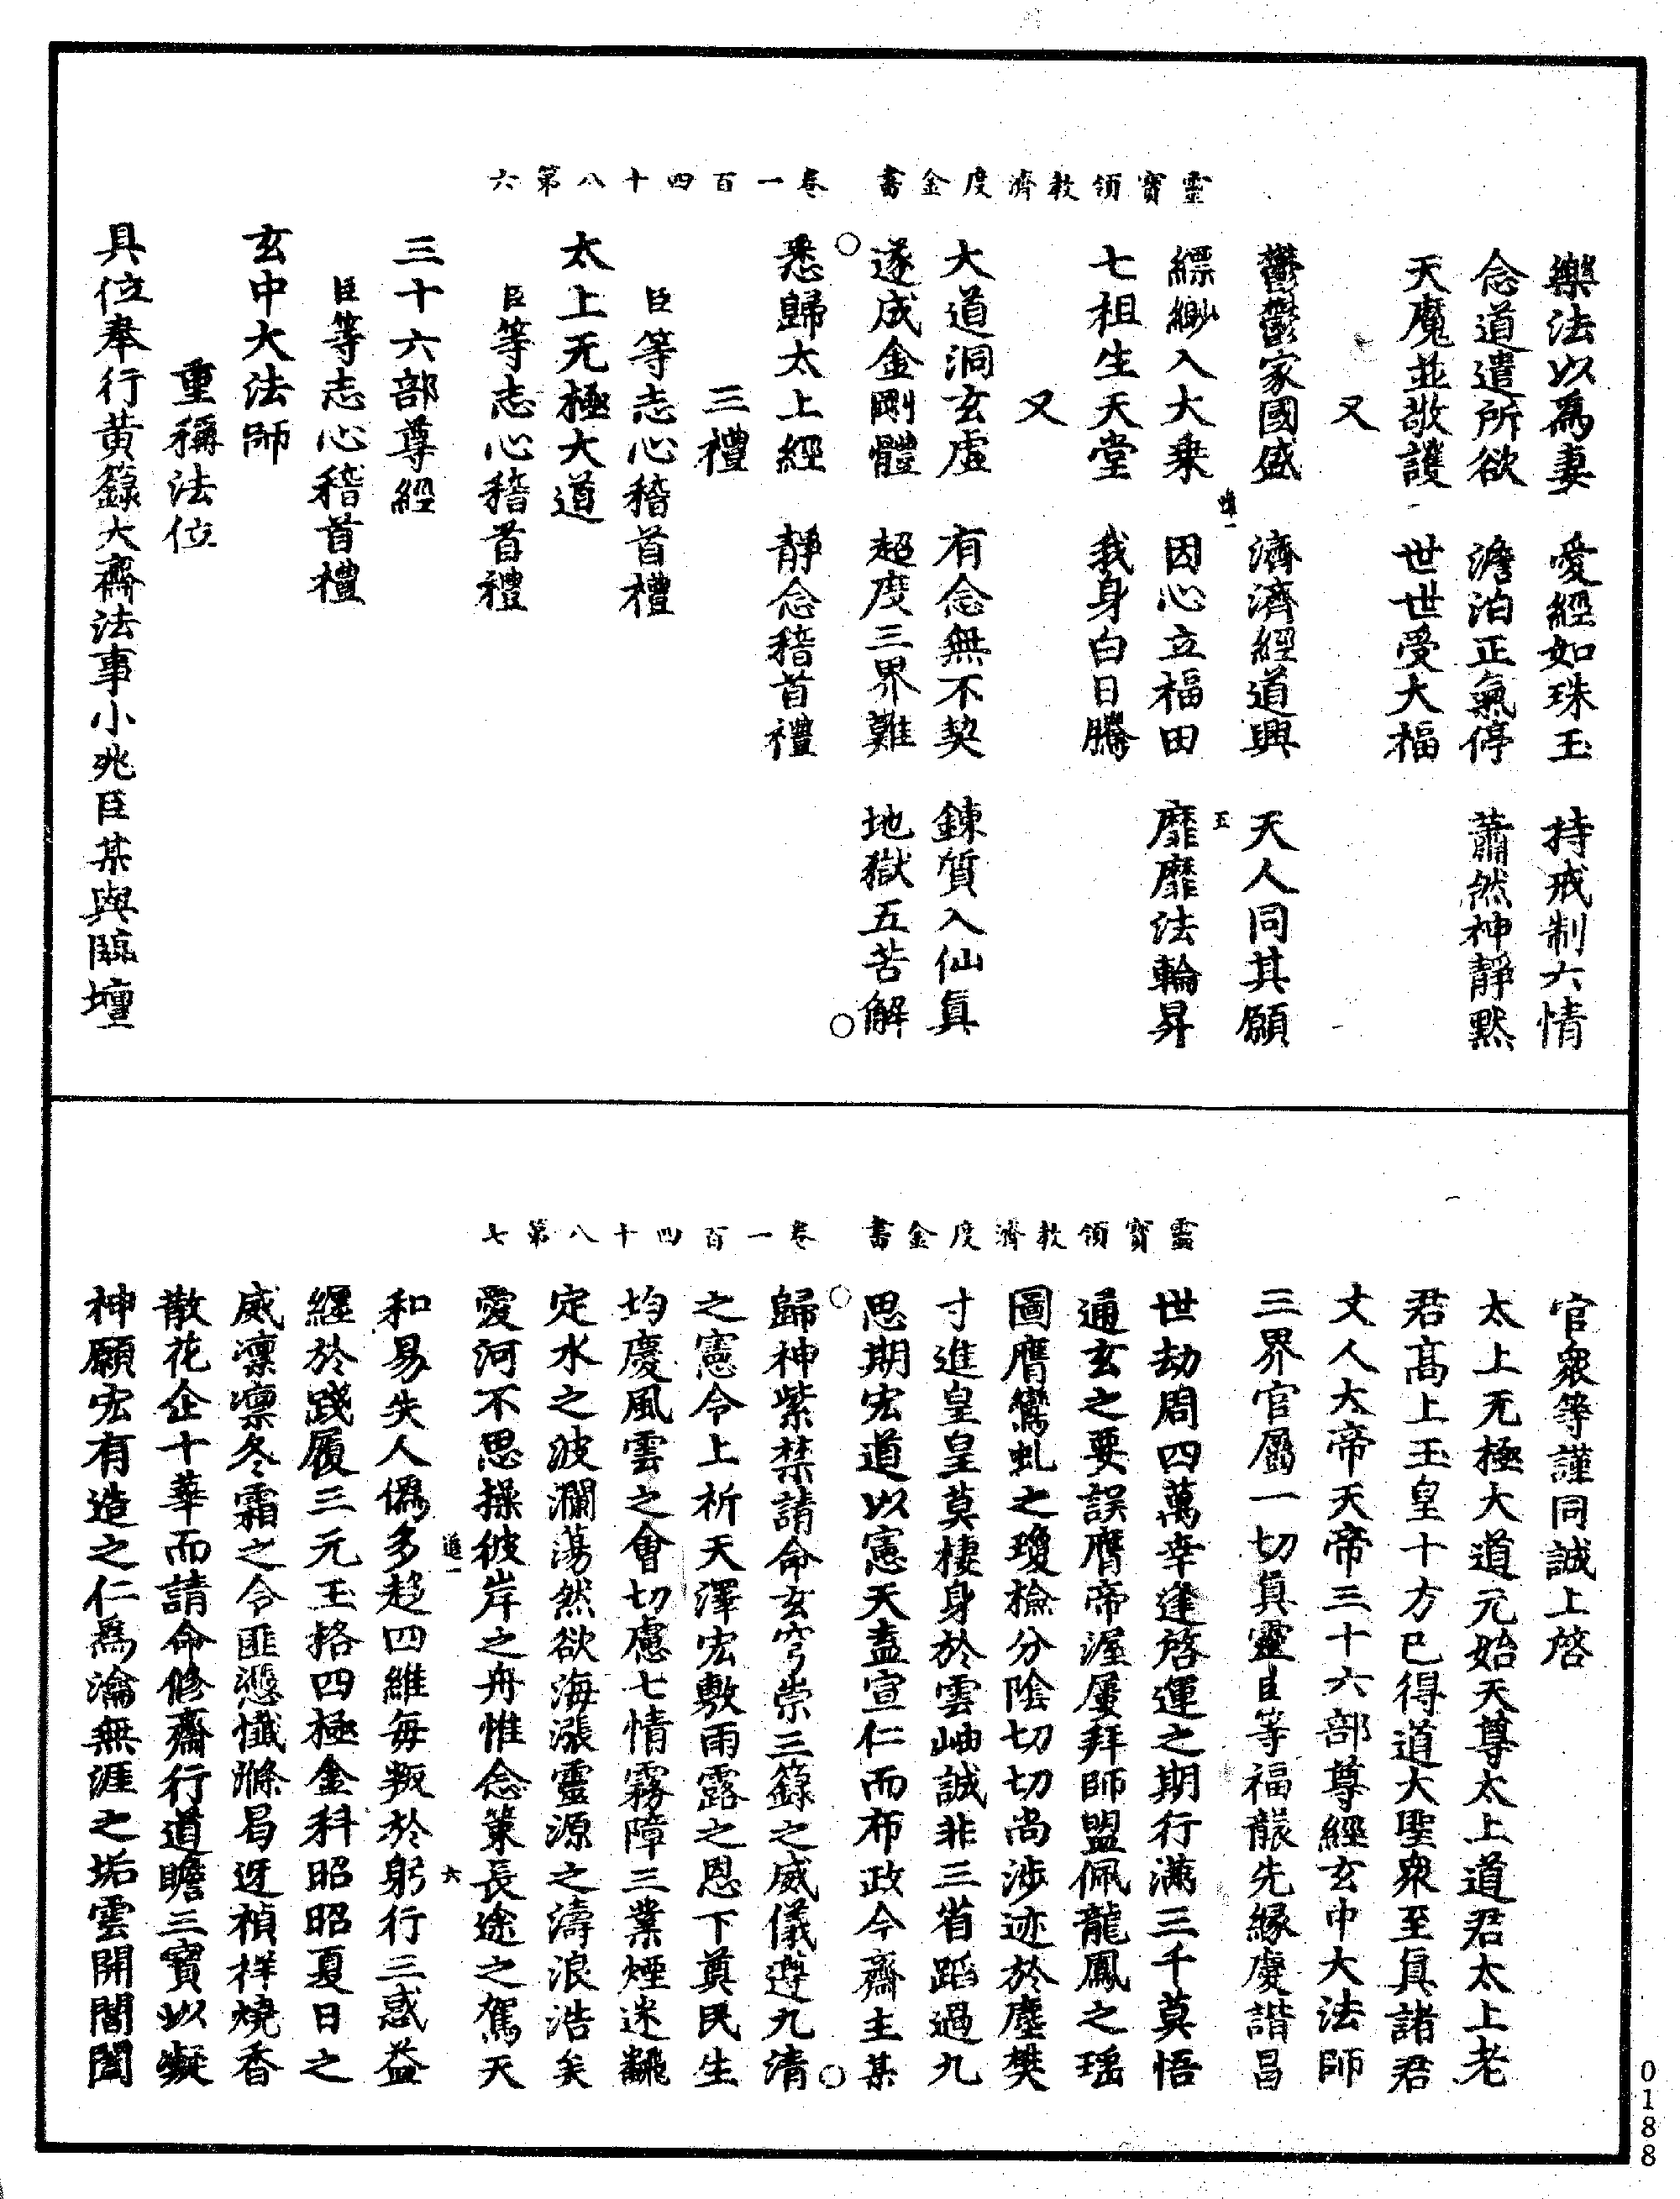 靈寶領教濟度金書　卷一百四十八第六
樂法以爲妻　愛經如珠玉　持戒制六情
念道遣所欲　澹泊正氣停　蕭然神靜默
天魔並敬護　世世受大福
又
鬱鬱家國盛　濟濟經道興　天人同其願
縹緲入大乗　因心立福田　靡靡法輪昇
七祖生天堂　我身白日騰
又
大道洞玄虛　有念無不契　鍊質入仙真
遂成金剛體　超度三界難　地獄五苦解
悉歸太上經　靜念稽首禮
三禮
臣等志心稽首禮
太上无極大道
臣等志心稽首禮
三十六部尊經
臣等志心稽首禮
玄中大法師
重稱法位
具位奉行黄籙大齋法事小兆臣某與臨壇
靈寶領教濟度金書　卷一百四十八第七
官衆等謹同誠上啓
太上无極大道元始天尊太上道君太上老
君高上玉皇十方已得道大聖衆至真諸君
丈人大帝天帝三十六部尊經玄中大法師
三界官屬一切真靈臣等福襲先緣慶諧昌
世劫周四萬幸逢啓運之期行滿三千莫悟
通玄之要誤膺帝渥屢拜師盟佩龍鳳之瑤
圖膺鸞虬之瓊檢分陰切切尚涉迹於塵樊
寸進皇皇莫棲身於雲岫誠非三省蹈過九
思期宏道以憲天盍宣仁而布政今齋主某
歸神紫禁請命玄穹崇三籙之威儀遵九清
之憲令上祈天澤宏敷雨露之恩下奠民生
均慶風雲之會切慮七情霧障三業煙迷飜
定水之波瀾蕩然欲海漲靈源之濤浪浩矣
愛河不思操彼岸之舟惟念策長途之駕天
和易失人僞多趍四維每叛於躬行三惑益
纒於踐履三元玉格四極金科昭昭夏日之
威凛凛冬霜之令匪愆懺滌曷迓禎祥燒香
散花企十華而請命修齋行道瞻三寳以凝
神願宏有造之仁爲瀹無涯之垢雲開閶闔
0188